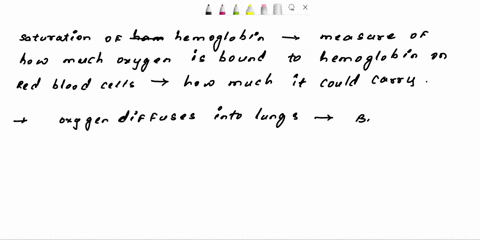 saturation of ham hemoglobin → measure of
how much oxygen is bound to hemoglobin on
Red blood cells → how much it could carry.
→ oxygen diffuses into lungs → B.